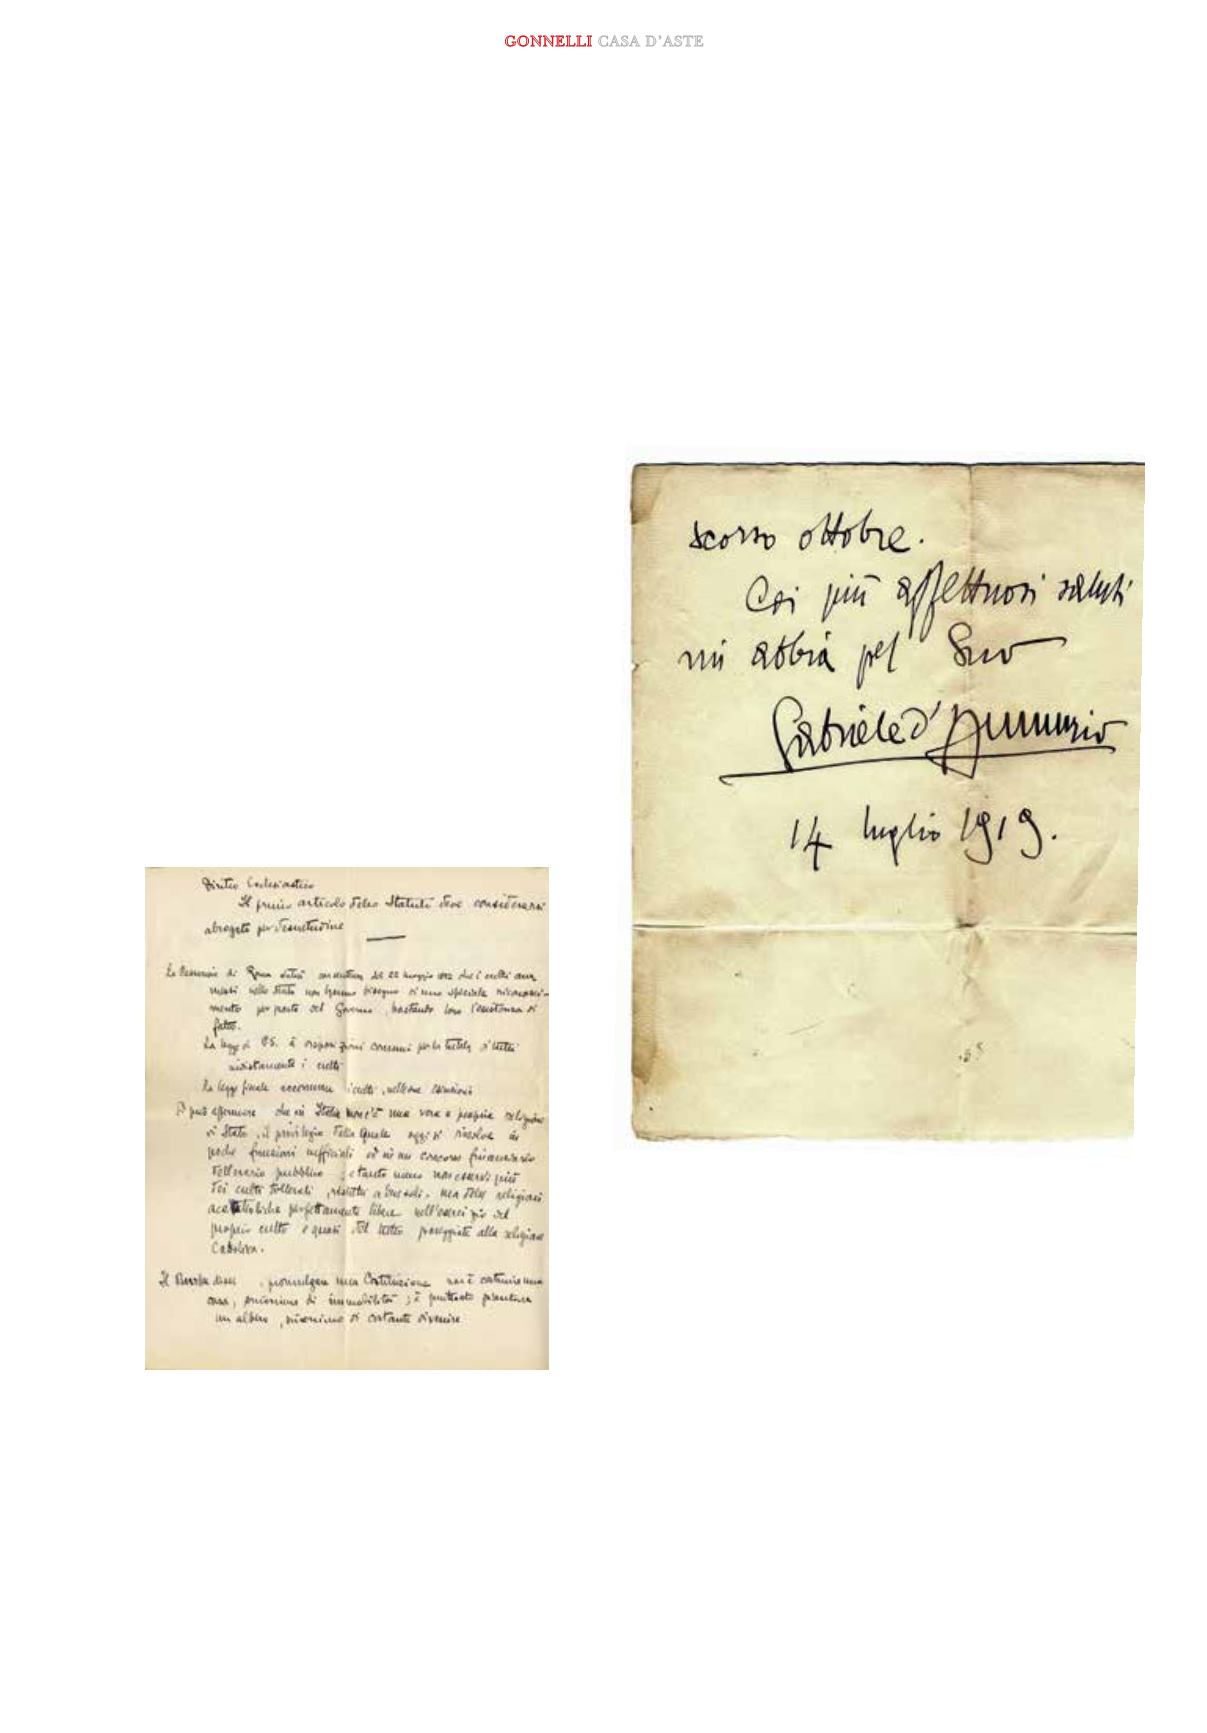 GONNELLI CASA D'ASTE
scorso ottobre.
Coi più affettuosi saluti
mi abbia pel Suo
Gabriele d'Annunzio
14 luglio 1919.
Diritto Ecclesiastico
Il primo articolo dello Statuto deve considerarsi
abrogato per desuetudine
La di Roma sentenza del 22 maggio che i culti
nello Stato non hanno bisogno di uno speciale riconosci-
mento per parte del Governo, bastando loro l'esistenza di
fatto.
La legge di P.S. à disposizioni comuni per la tutela di tutti
i culti
La legge penale accomuna i culti
Si può affermare che in Italia non c'è una vera e propria religione
di Stato, il privilegio della quale oggi si risolve in
poche funzioni ufficiali ed in un concorso finanziario
dell'erario pubblico; e tanto meno non esservi più
dei culti tollerati, ma delle religioni
acattoliche perfettamente libere nell'esercizio del
proprio culto e quasi del tutto pareggiate alla religione
Cattolica.
Il disse, promulgare una Costituzione non è costruire una
casa, sinonimo di immobilità; è piuttosto piantare
un albero, sinonimo di costante divenire